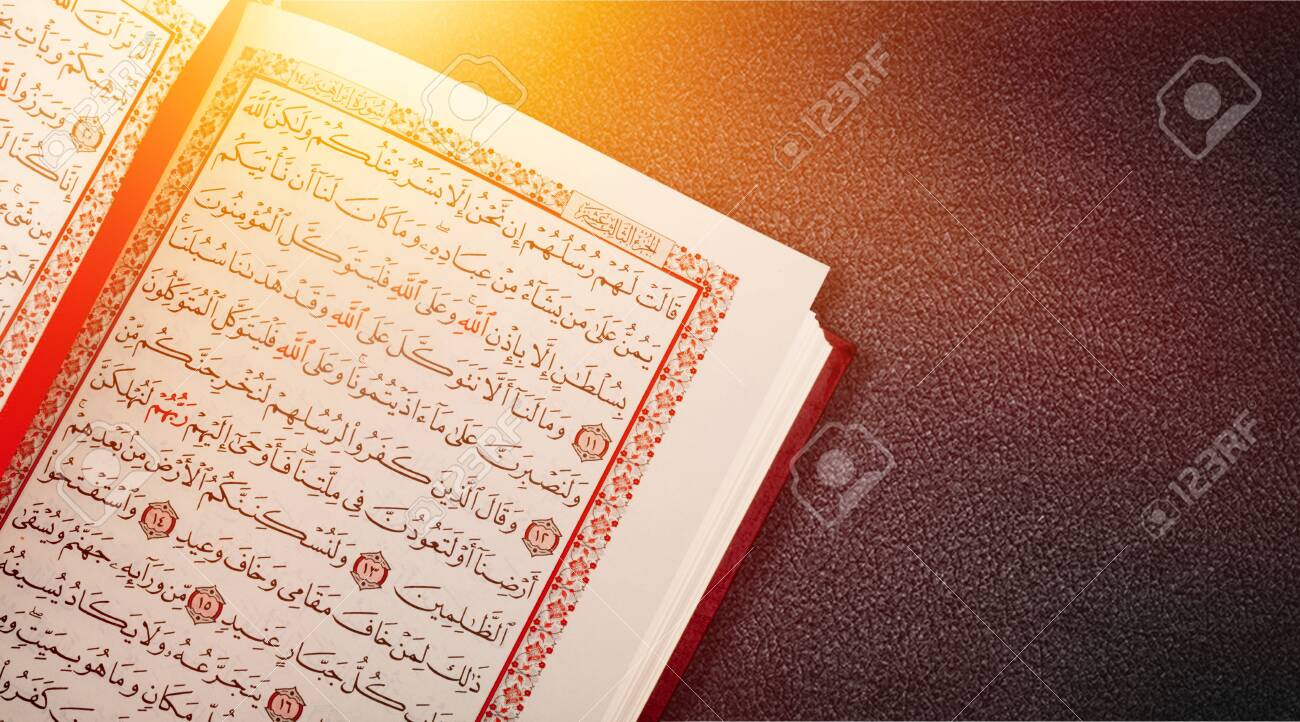 سُورَةُ إِبْرَاهِيمَ ١٤
الجُزْءُ الثَّالِثَ عَشَرَ
قَالَتْ لَهُمْ رُسُلُهُمْ إِن نَّحْنُ إِلَّا بَشَرٌ مِّثْلُكُمْ وَلَٰكِنَّ ٱللَّهَ
يَمُنُّ عَلَىٰ مَن يَشَآءُ مِنْ عِبَادِهِۦ ۖ وَمَا كَانَ لَنَآ أَن نَّأْتِيَكُم
بِسُلْطَٰنٍ إِلَّا بِإِذْنِ ٱللَّهِ ۚ وَعَلَى ٱللَّهِ فَلْيَتَوَكَّلِ ٱلْمُؤْمِنُونَ
١١ وَمَا لَنَآ أَلَّا نَتَوَكَّلَ عَلَى ٱللَّهِ وَقَدْ هَدَىٰنَا سُبُلَنَا ۚ
وَلَنَصْبِرَنَّ عَلَىٰ مَآ ءَاذَيْتُمُونَا ۚ وَعَلَى ٱللَّهِ فَلْيَتَوَكَّلِ ٱلْمُتَوَكِّلُونَ
١٢ وَقَالَ ٱلَّذِينَ كَفَرُوا۟ لِرُسُلِهِمْ لَنُخْرِجَنَّكُم مِّنْ
أَرْضِنَآ أَوْ لَتَعُودُنَّ فِى مِلَّتِنَا ۖ فَأَوْحَىٰٓ إِلَيْهِمْ رَبُّهُمْ لَنُهْلِكَنَّ
ٱلظَّٰلِمِينَ ١٣ وَلَنُسْكِنَنَّكُمُ ٱلْأَرْضَ مِنۢ بَعْدِهِمْ
ذَٰلِكَ لِمَنْ خَافَ مَقَامِى وَخَافَ وَعِيدِ ١٤ وَٱسْتَفْتَحُوا۟
كُلُّ جَبَّارٍ عَنِيدٍ ١٥ مِّن وَرَآئِهِۦ جَهَنَّمُ وَيُسْقَىٰ
١٦ يَتَجَرَّعُهُۥ وَلَا يَكَادُ يُسِيغُهُۥ
مَكَانٍ وَمَا هُوَ بِمَيِّتٍ ۖ
كَفَرُوا۟
وَيَأْتِ
٢٠ وَبَرَزُوا۟
إِنَّا كُنَّا
مِن شَىْءٍ
123RF
123RF
123RF